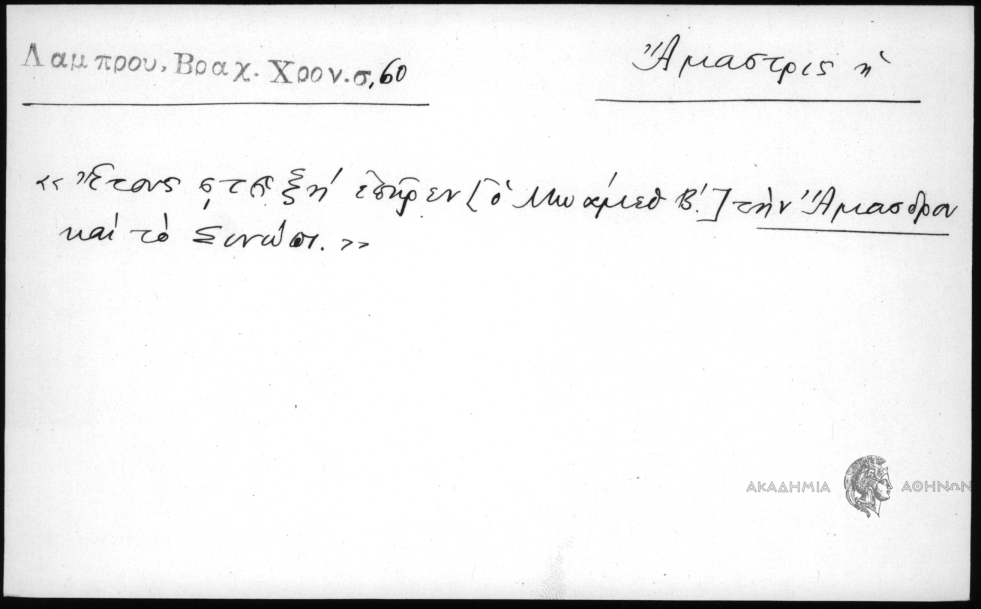 Λαμπρου, Βραχ. Χρον. σ, 60
Ἄμαστρις ἡ
«Ἔτους ͵ϛϡξή ἐπῆρεν [ὁ Μωάμεθ Β΄.] τὴν Ἄμασδρον
καὶ τὸ Συνώπι.»
ΑΚΑΔΗΜΙΑ ΑΘΗΝΩΝ